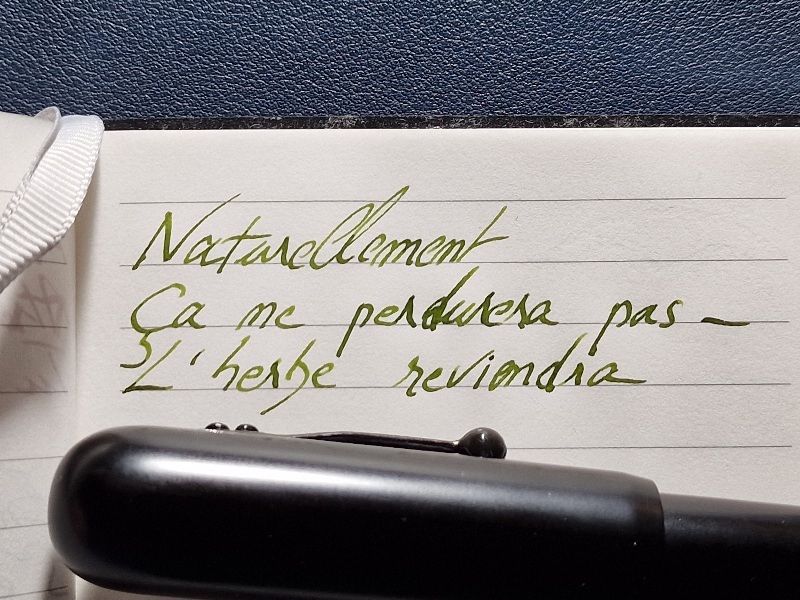 Naturellement
Ça ne perdurera pas –
L'herbe reviendra